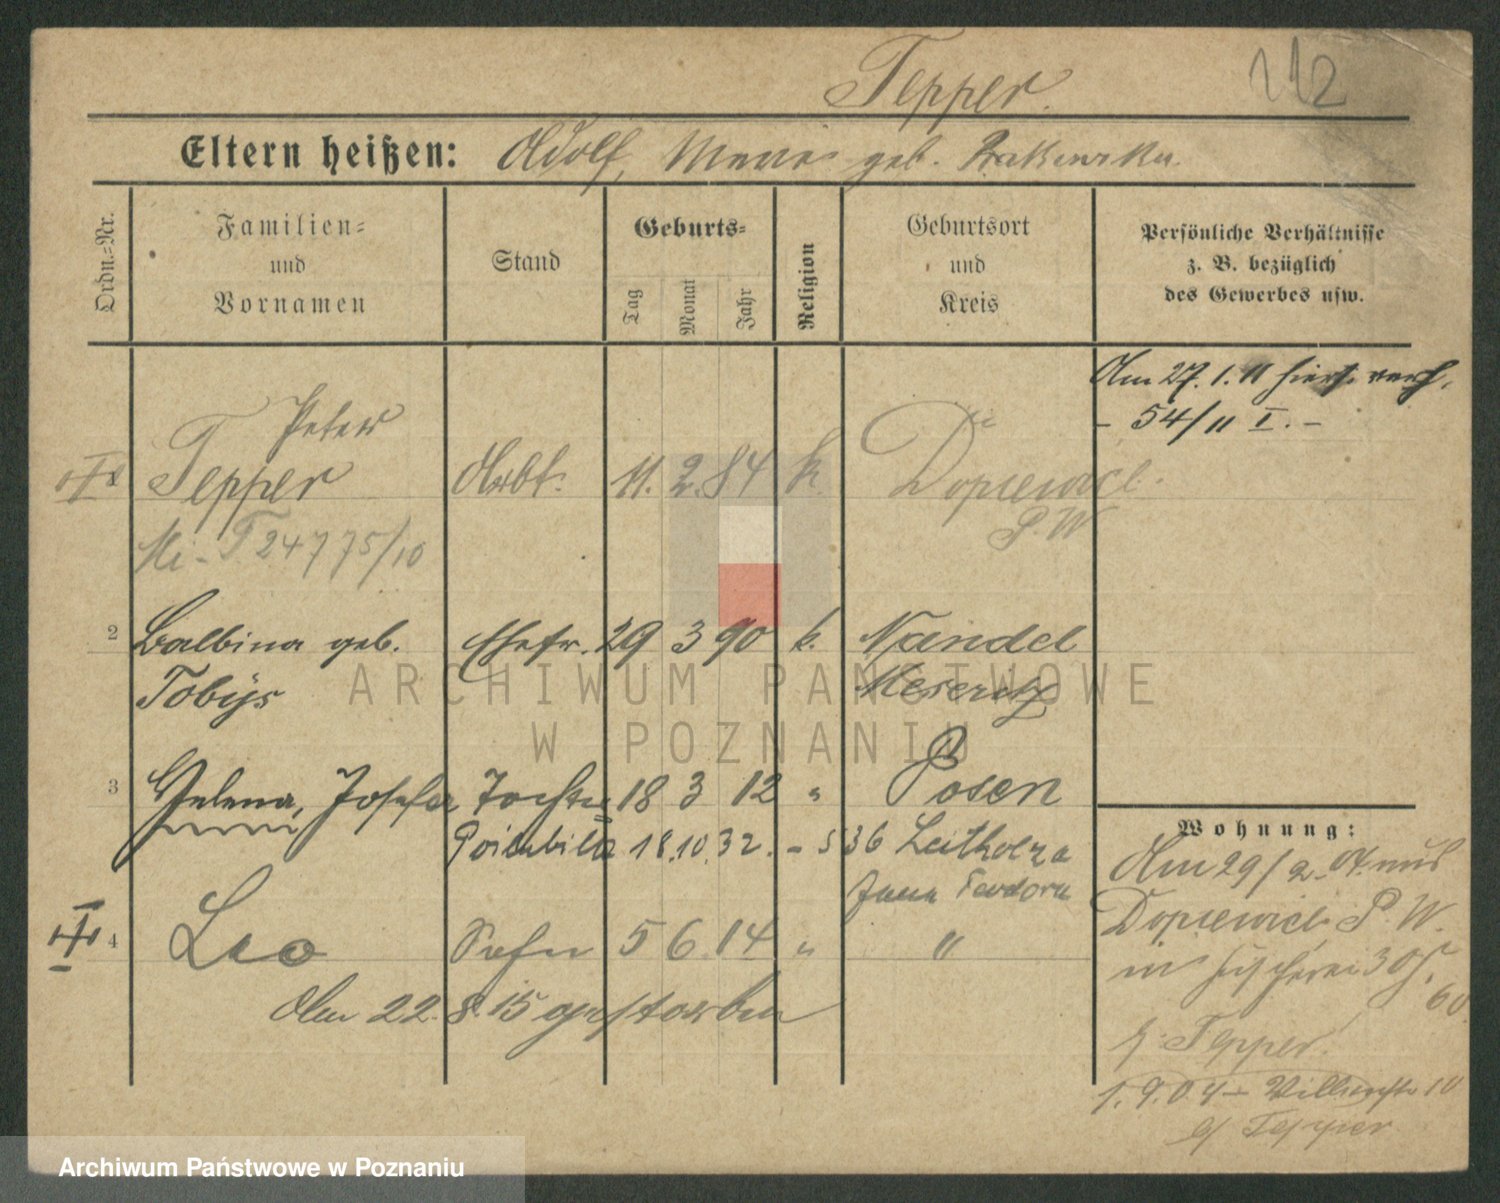 Tepper.
112
Eltern heißen: Adolf, Marie geb.
Ordn.-Nr.
Familien- und Vornamen
Stand
Geburts-
Tag
Monat
Jahr
Religion
Geburtsort und Kreis
Persönliche Verhältnisse
z. B. bezüglich
des Gewerbes usw.
Am 27.1.11 hierf. verh.
- 54/11 I. -
Peter
Tepper Arbt. 11. 2. 84 k. Dopiewiec.
P. W
24775/10
2 Balbina geb. Ehefr. 29 3 90 k. Nandel
Tobijs Meseritz
3 Helena, Josefa Tochter 18 3 12 " Posen
18.10.32. - 536
4 Leo Sohn 5 6. 14 " "
Am 22. 8. 15 gestorben
Wohnung:
Am 29/2. 04. aus
Dopiewiec P. W.
in
b/ Tepper.
1.9.04 -
b/ Tepper
ARCHIWUM PAŃSTWOWE
W POZNANIU
Archiwum Państwowe w Poznaniu